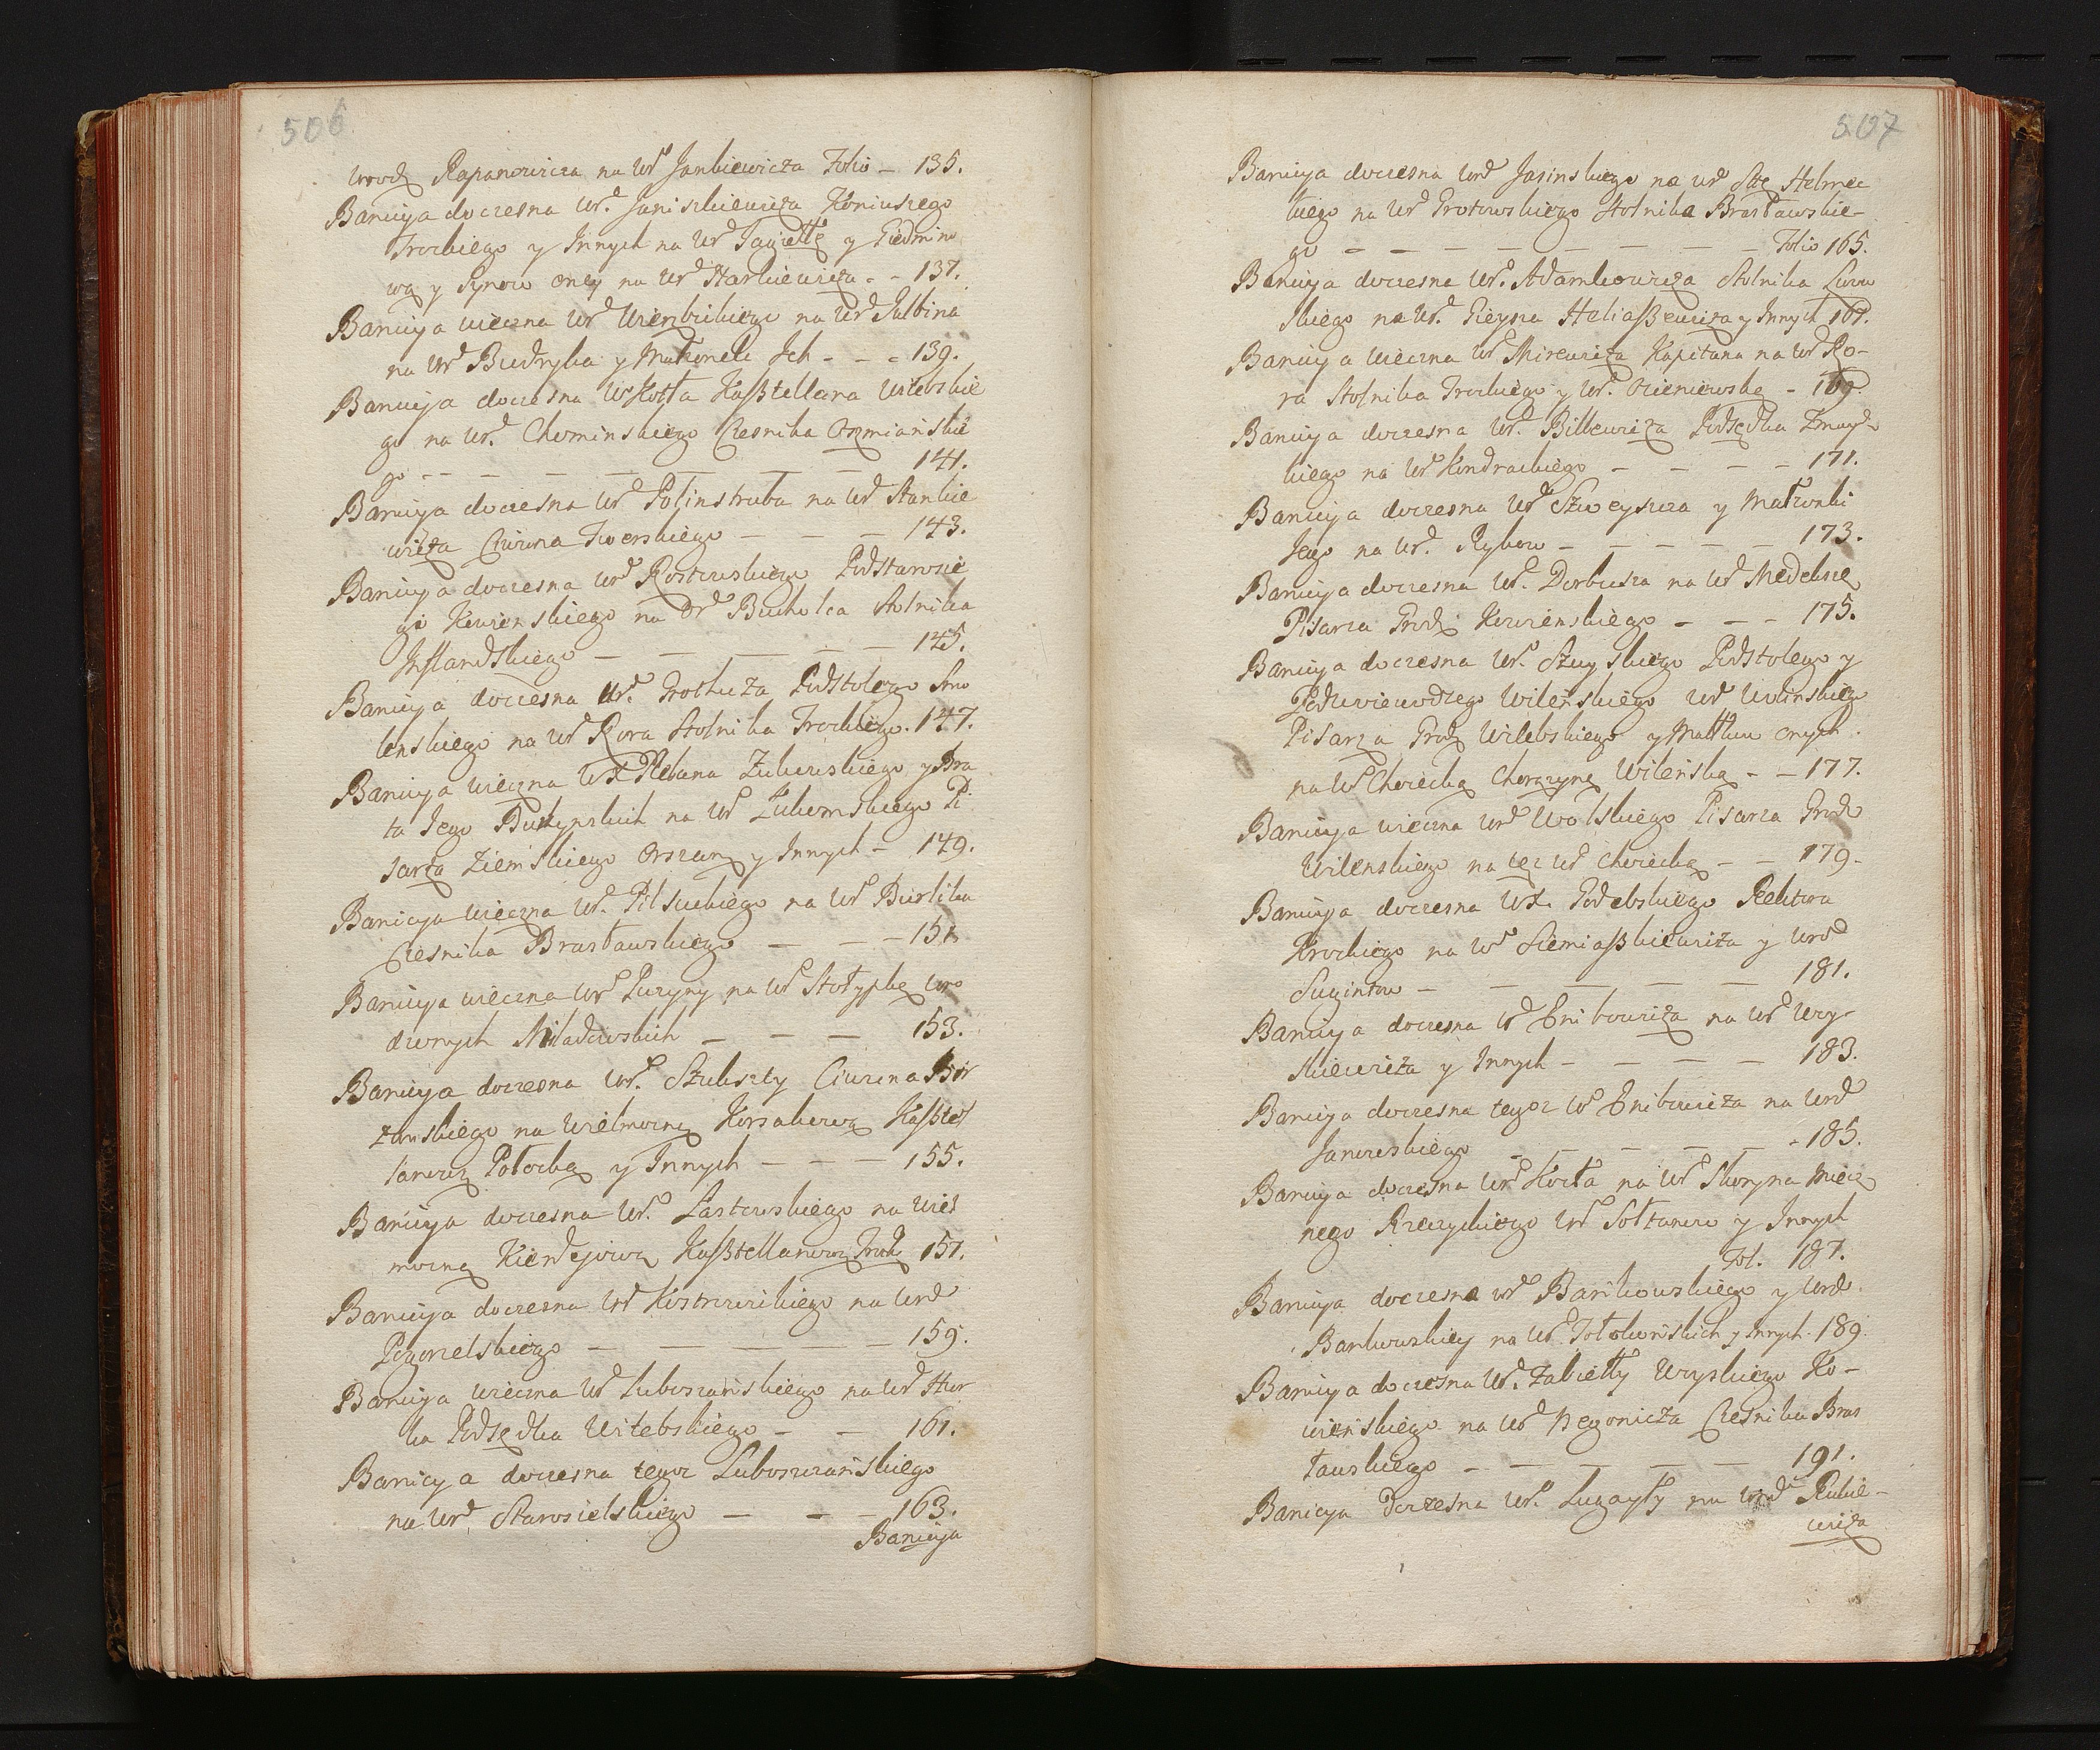 506
urodz Rapanowicza na Ur Jankiewicza Folio – 135.
Banicya doczesna Ur. Janiszkiewicza Koniuszego
Trockiego y Innych na Ur Jagiełłę y Giedmino
wą y Synow oney na Ur Starkiewicza - - 137.
Banicya wieczna Ur na Ur
na Ur Budryka y Małżonek Ich - - - 139.
Banicya doczesna W Kotła Kasztellana Witebskie
go na Ur. Chominskiego Czesnika Oszmiańskie
go - - - - - - - 141.
Banicya doczesna Ur na Ur Stankie
wicza Ciwuna Twerskiego - - - 143.
Banicya doczesna Ur Rostowskiego Podstarosie
go Kowienskiego na Ur Bucholca Stolnika
Inflandskiego - - - - - 145.
Banicya doczesna Ur. Podstolego Smo
lenskiego na Ur Rora Stolnika Trockiego. 147.
Banicya wieczna WX Plebana Zukowskiego y Bra
ta Jego na Ur Pi
sarza Ziemskiego Orszań y Innych - 149.
Banicya wieczna Ur. Pilsuckiego na Ur
Czesnika Brasławskiego - - - 151.
Banicya wieczna Ur Puzyny na Ur Stołypkę uro
dzonych Miladowskich - - - 153.
Banicya doczesna Ur. Szukszty Ciwuna Bir
zanskiego na Wielmożną Korsakową Kasztel
lanową Połocką y Innych - - - 155.
Banicya doczesna Ur. Lastowskiego na Wiel
możną Kierdejową Kasztellanową Trock 157.
Banicya doczesna Ur Kostrowickiego na Urd
Pogorzelskiego - - - - - 159.
Banicya wieczna Ur Luboszczańskiego na Ur Hur
ka Podsędka Witebskiego - - 161.
Banicya doczesna tegoż Luboszczańskiego
na Ur Starosielskiego - - - 163.
Banicya
507
Banicya doczesna Urd Jasinskiego na Ur
kiego na Ur Grotowskiego Stolnika Brasławskie-
go - - - - - - - Folio 165.
Banicya doczesna Ur. Adamkowicza Stolnika
skiego na Ur. Gieysza Heliaszewicza y Innych 167.
Banicya wieczna Ur Mirewicza Kapitana na Ur Ro-
ra Stolnika Trockiego y Ur. - 169.
Banicya doczesna Ur. Billewicza Podsędka Zmuydz
kiego na Ur Kondrackiego - - - - 171.
Banicya doczesna Ur Szweyszcza y Małżonki
Jego na Ur. Rykow - - - - - 173.
Banicya doczesna Ur. Dorbusza na Ur Medekszę
Pisarza Grodz Kowienskiego - - - 175.
Banicya doczesna Ur. Szuyskiego Podstolego y
Podwojewodzego Wileńskiego Ur Wolinskiego
Pisarza Grodz Witebskiego y Małżonkow onych
na Ur Chorecką Chorążynę Wileńską - - 177.
Banicya wieczna Urd Wolskiego Pisarza Grodz
Wilenskiego na tęż Ur Chorecką - - 179-
Banicya doczesna WX. Podebskiego Rektora
Krockiego na Ur Siemiaszkiewicza y Urod
Sugintow - - - - - 181.
Banicya doczesna Ur Enibowicza na Ur Wry-
skiewicza y Innych - - - - 183.
Banicya doczesna tegoż Ur Enibowicza na Urd
Janczeskiego - - - - - 185.
Banicya doczesna Ur Kotła na Ur Skoryna Miecz
nego Rzeczyckiego Ur Sołtanow y Innych
Fol. 187.
Banicya doczesna Ur Bańkowskiego y Urod
Bankowskiey na Ur. Tołokońskich y Innych. 189.
Banicya doczesna Ur. Zabiełły Woyskiego Ko-
wieńskiego na Ur Czesnika Bras
ławskiego - - - - - 191.
Banicya Doczesna Ur. na Urd Rukie-
wicza